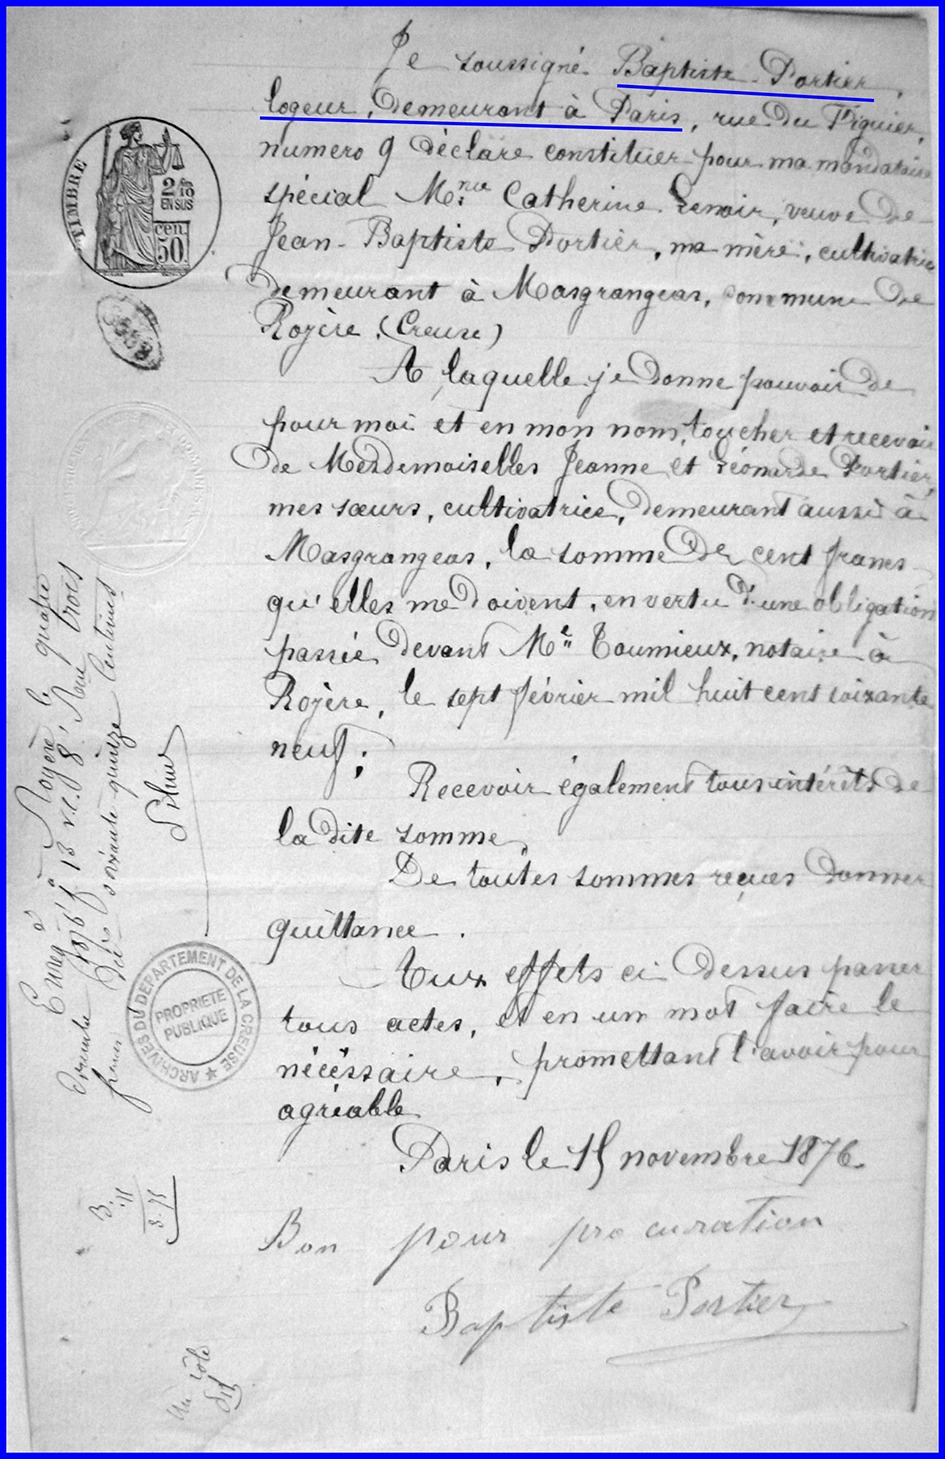 Je soussigné Baptiste Portier,
logeur, demeurant à Paris, rue du Figuier,
numero 9 déclare constituer pour ma mandataire
spécial Mme Catherine Lenoir, veuve de
Jean-Baptiste Portier, ma mère, cultivatrice
demeurant à Masgrangeas, commune de
Royère (Creuse)
A laquelle je donne pouvoir de
pour moi et en mon nom, toucher et recevoir
de Mesdemoiselles Jeanne et Léonarde Portier,
mes sœurs, cultivatrice, demeurant aussi à
Masgrangeas, la somme de cent francs
qu'elles me doivent, en vertu d'une obligation
passée devant Me Toumieux, notaire à
Royère, le sept février mil huit cent soixante
neuf;
Recevoir également tous intérêts de
la dite somme,
De toutes sommes reçues donner
quittance.
Aux effets ci dessus passer
tous actes, et en un mot faire le
nécessaire, promettant l'avoir pour
agréable
Paris le 15 novembre 1876
Bon pour procuration
Baptiste Portier
TIMBRE
2/10
EN SUS
50 cen
Enreg à Royère le quatre
1876 fo 13 vo c. 8. Reçu trois
francs soixante quinze centimes
3.
3.75
ARCHIVES DU DÉPARTEMENT DE LA CREUSE
PROPRIETE
PUBLIQUE